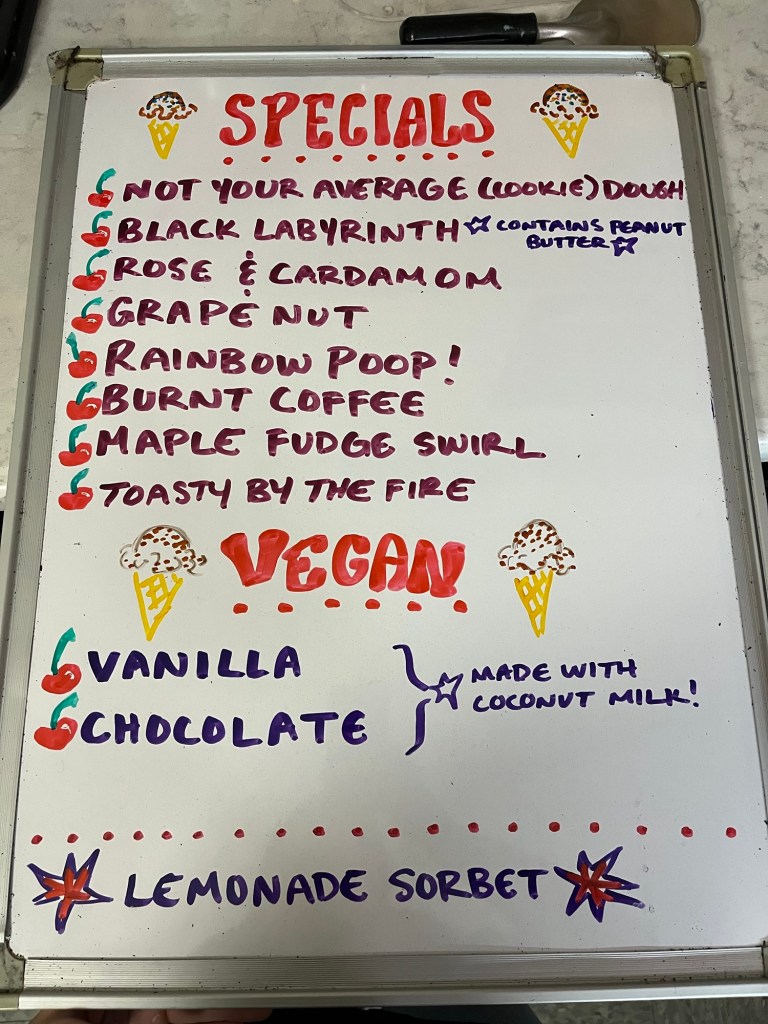 SPECIALS
NOT YOUR AVERAGE (COOKIE) DOUGH
BLACK LABYRINTH ☆ CONTAINS PEANUT
BUTTER ☆
ROSE & CARDAMOM
GRAPE NUT
RAINBOW POOP!
BURNT COFFEE
MAPLE FUDGE SWIRL
TOASTY BY THE FIRE
VEGAN
VANILLA
CHOCOLATE
☆ MADE WITH
COCONUT MILK!
LEMONADE SORBET